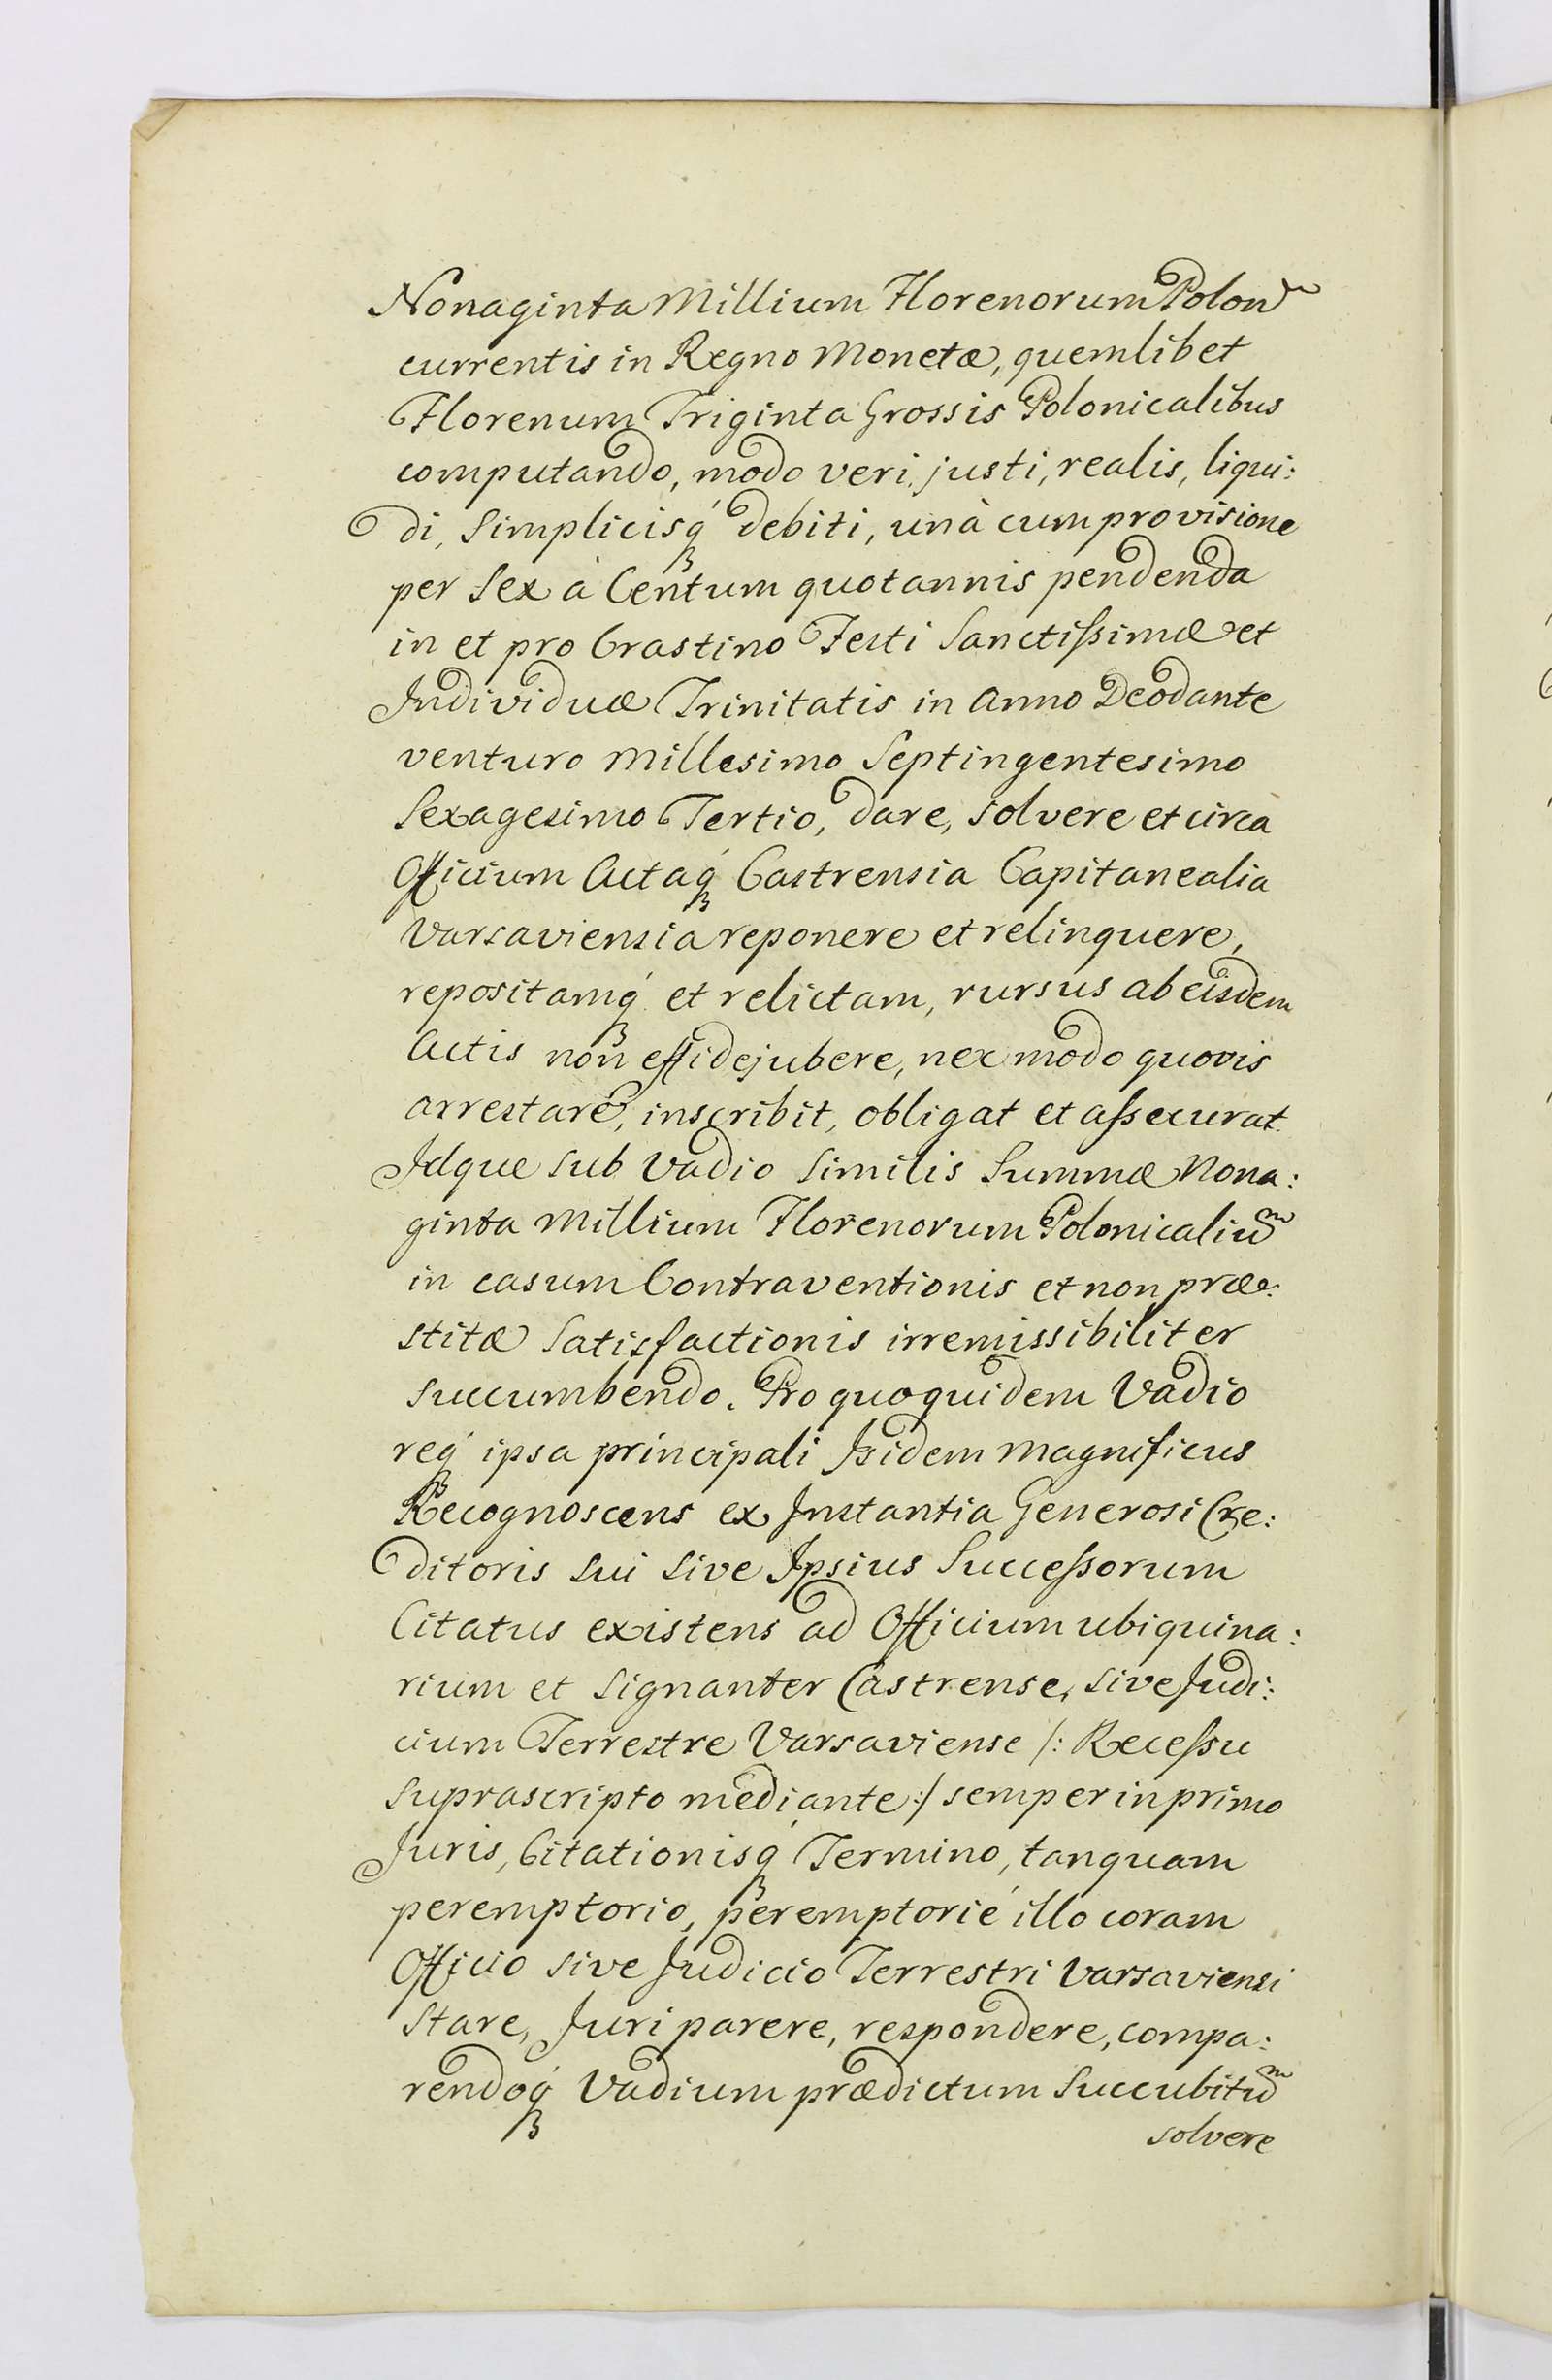 Nonaginta Millium Florenorum Polon
currentis in Regno Monetæ, quemlibet
Florenum Triginta Grossis Polonicalibus
computando, modo veri, justi, realis, liqui:
di, Simplicisq́ debiti, unà cum provisione
per Sex à Centum quotannis pendenda
in et pro Crastino Festi Sanctißimæ et
Individuæ Trinitatis in Anno Deodante
venturo Millesimo Septingentesimo
Sexagesimo Tertio, dare, solvere et circa
Officium Actaq́ Castrensia Capitanealia
Varsaviensia reponere et relinquere,
repositamq́ et relictam, rursus ab eisdem
Actis non effidejubere, nec modo quovis
arrestare, inscribit, obligat et aßecurat.
Idque sub Vadio Similis Summæ Nona:
ginta Millium Florenorum Polonicaliũ
in casum Contraventionis et non præ:
stitæ Satisfactionis irremissibiliter
succumbendo. Pro quo quidem Vadio
req́ ipsa principali Isidem Magnificus
Recognoscens ex Instantia Generosi Cre:
ditoris sui sive Ipsius Succeßorum
Citatus existens ad Officium ubiquina:
rium et Signanter Castrense, sive Judi:
cium Terrestre Varsaviense /: Receßu
suprascripto mediante :/ semper in primo
Juris, Citationisq́ Termino, tanquam
peremptorio, peremptorié illo coram
Officio sive Judicio Terrestri Varsaviensi
Stare, Juri parere, respondere, compa:
rendoq́ Vadium prædictum Succubitũ
solvere